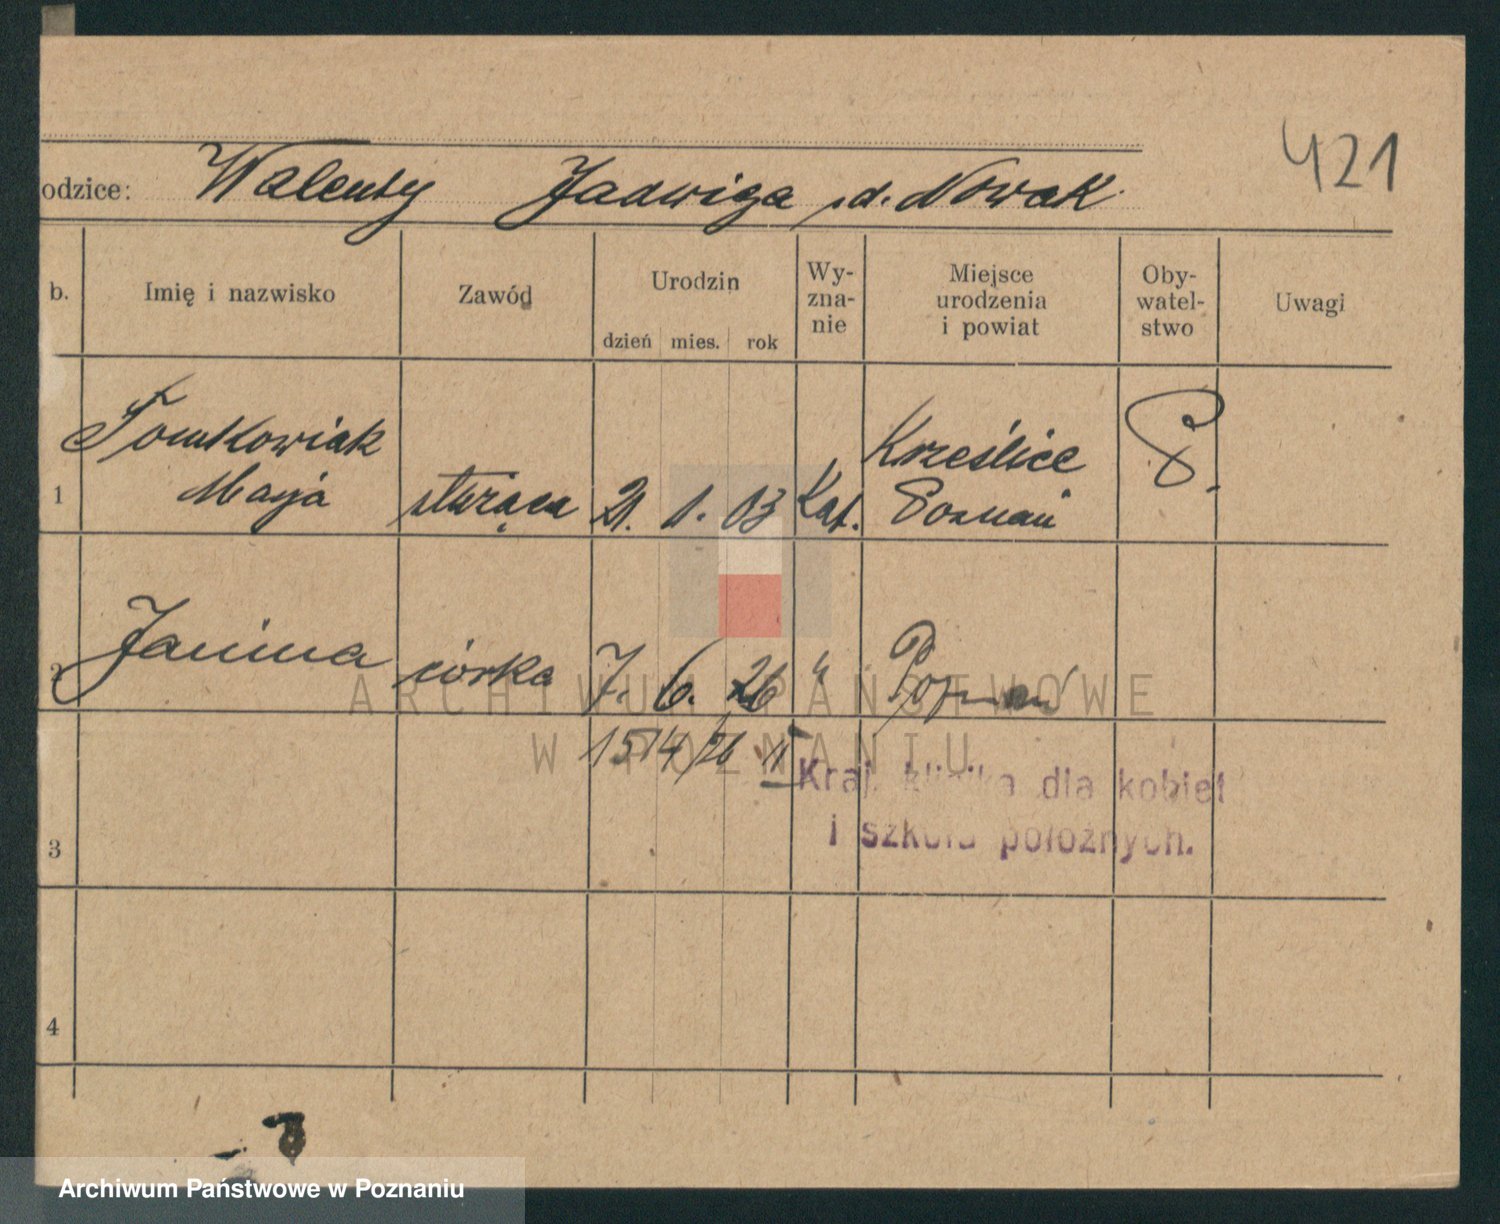 421
odzice: Walenty Jadwiga z d. Nowak
b. Imię i nazwisko Zawód Urodzin dzień mies. rok Wy-zna-nie Miejsce urodzenia i powiat Oby-watel-stwo Uwagi
Tomkowiak Krześlice P.
1 Marja służąca 21. 1. 03 Kat. Poznań
2 Janina córka 7. 6. 26 " Poznań
1514/26 II
Kraj. klinika dla kobiet
3 i szkoła położnych.
4
ARCHIWUM PAŃSTWOWE
W POZNANIU
Archiwum Państwowe w Poznaniu